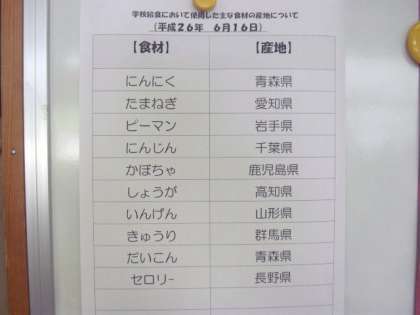 学校給食において使用した主な食材の産地について
(平成26年 6月16日)
【食材】 【産地】
にんにく 青森県
たまねぎ 愛知県
ピーマン 岩手県
にんじん 千葉県
かぼちゃ 鹿児島県
しょうが 高知県
いんげん 山形県
きゅうり 群馬県
だいこん 青森県
セロリー 長野県